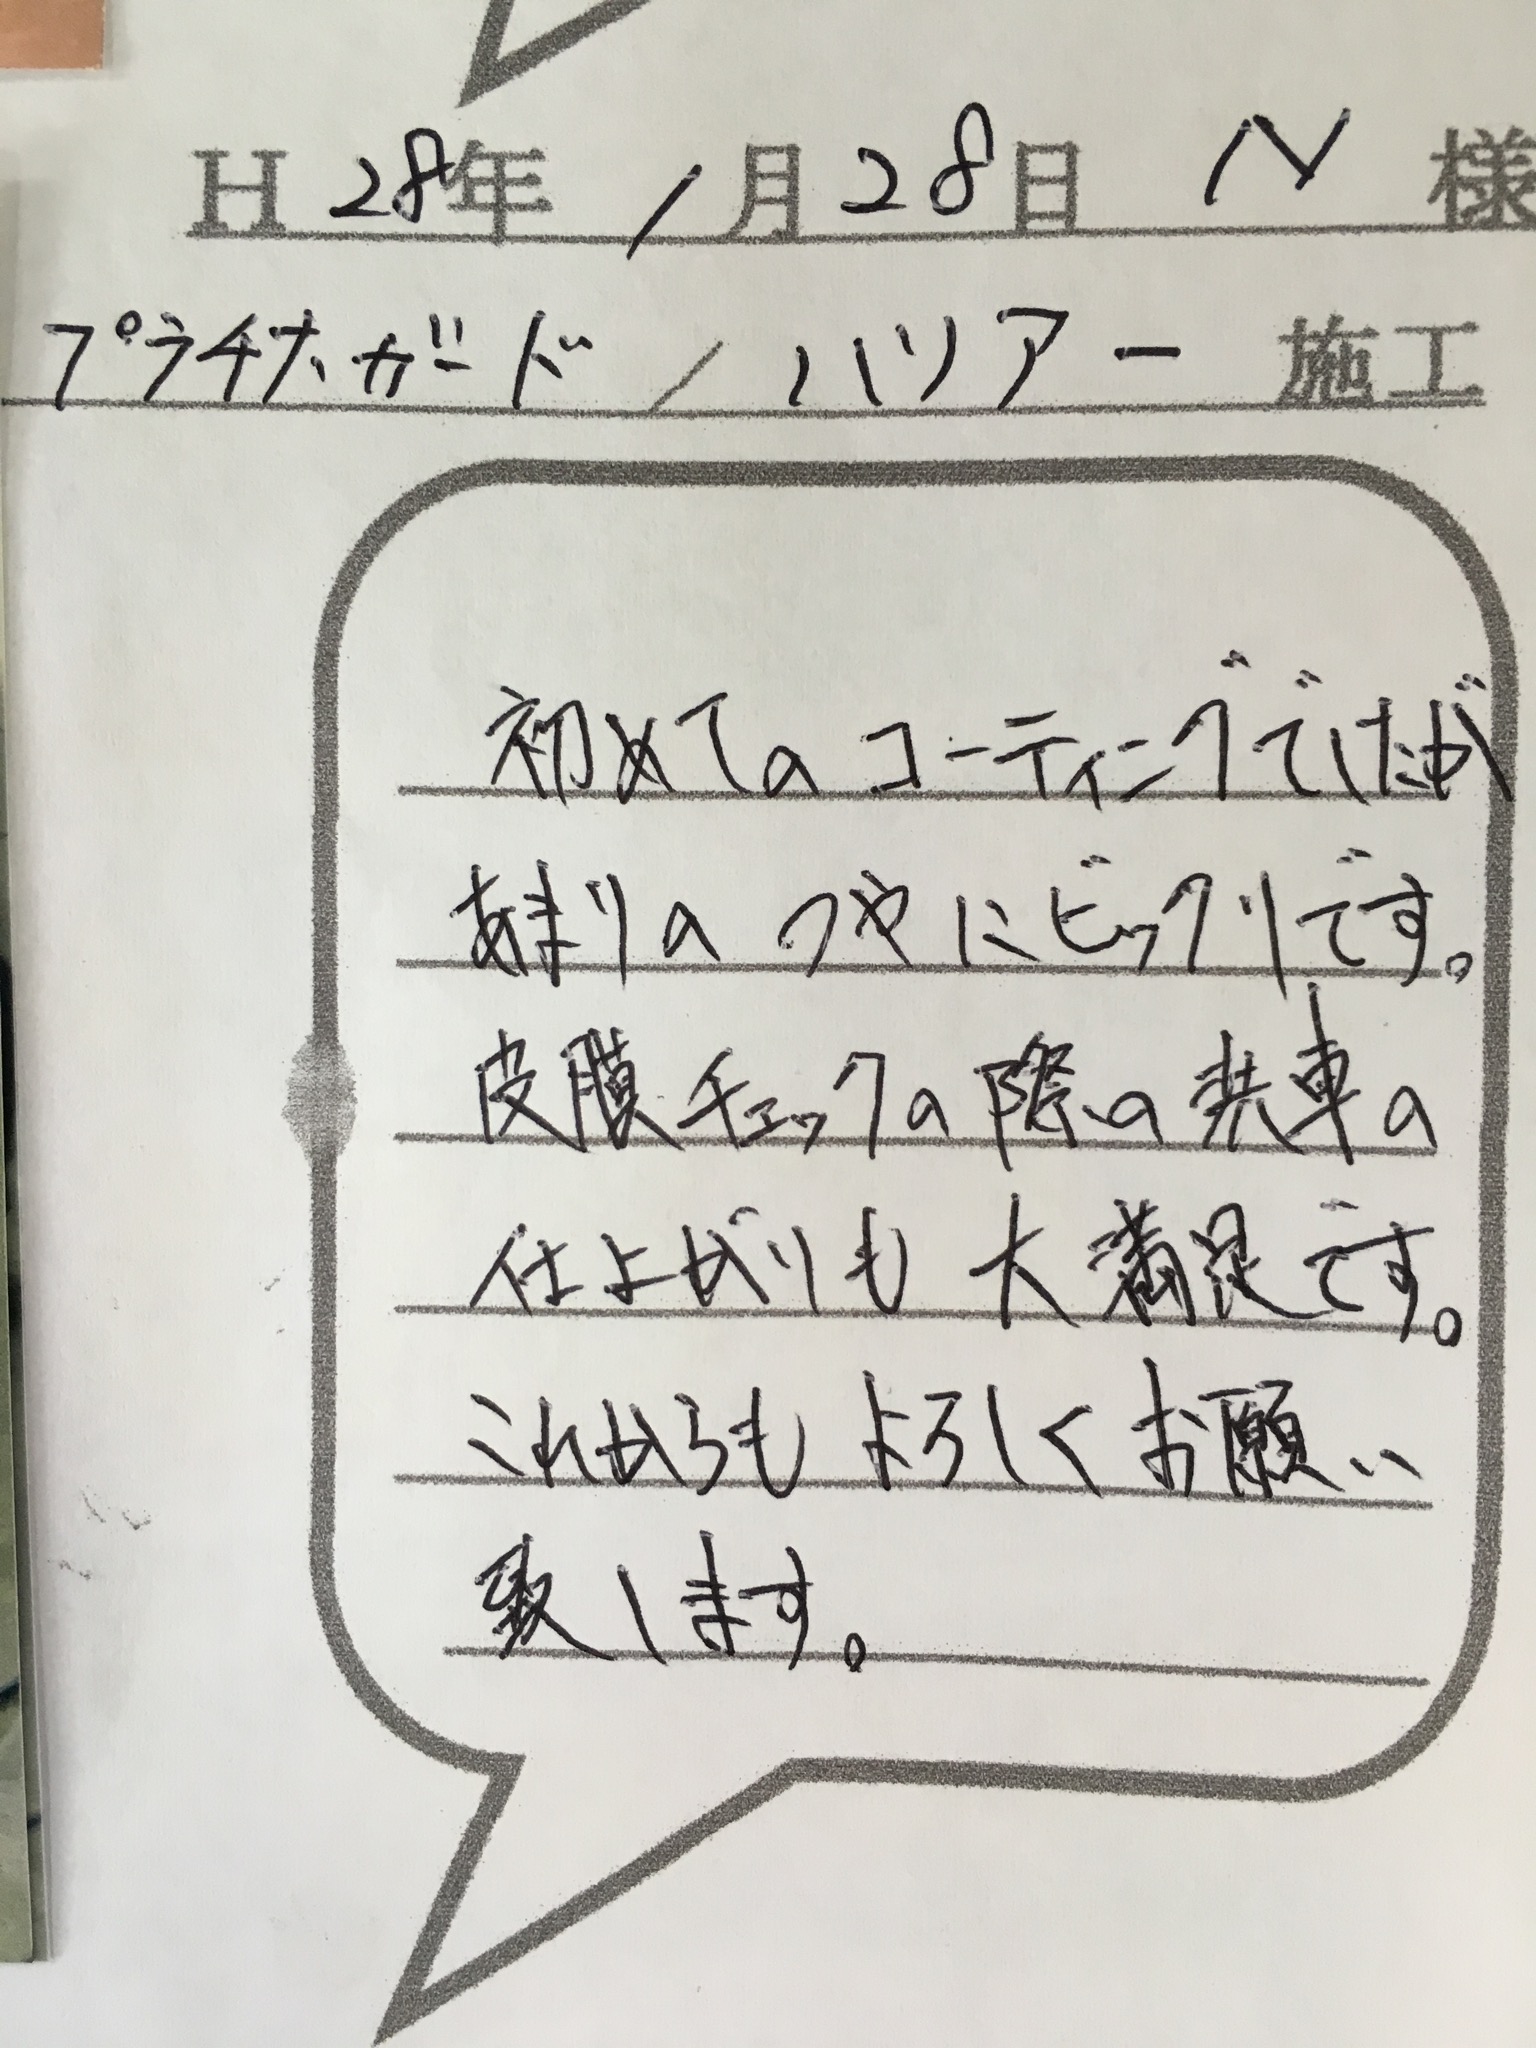 H28年1月28日 N 様
プラチナガード/ハリアー 施工
初めてのコーティングでしたが
あまりのつやにビックリです。
皮膜チェックの際の洗車の
仕上がりも大満足です。
これからもよろしくお願い
致します。